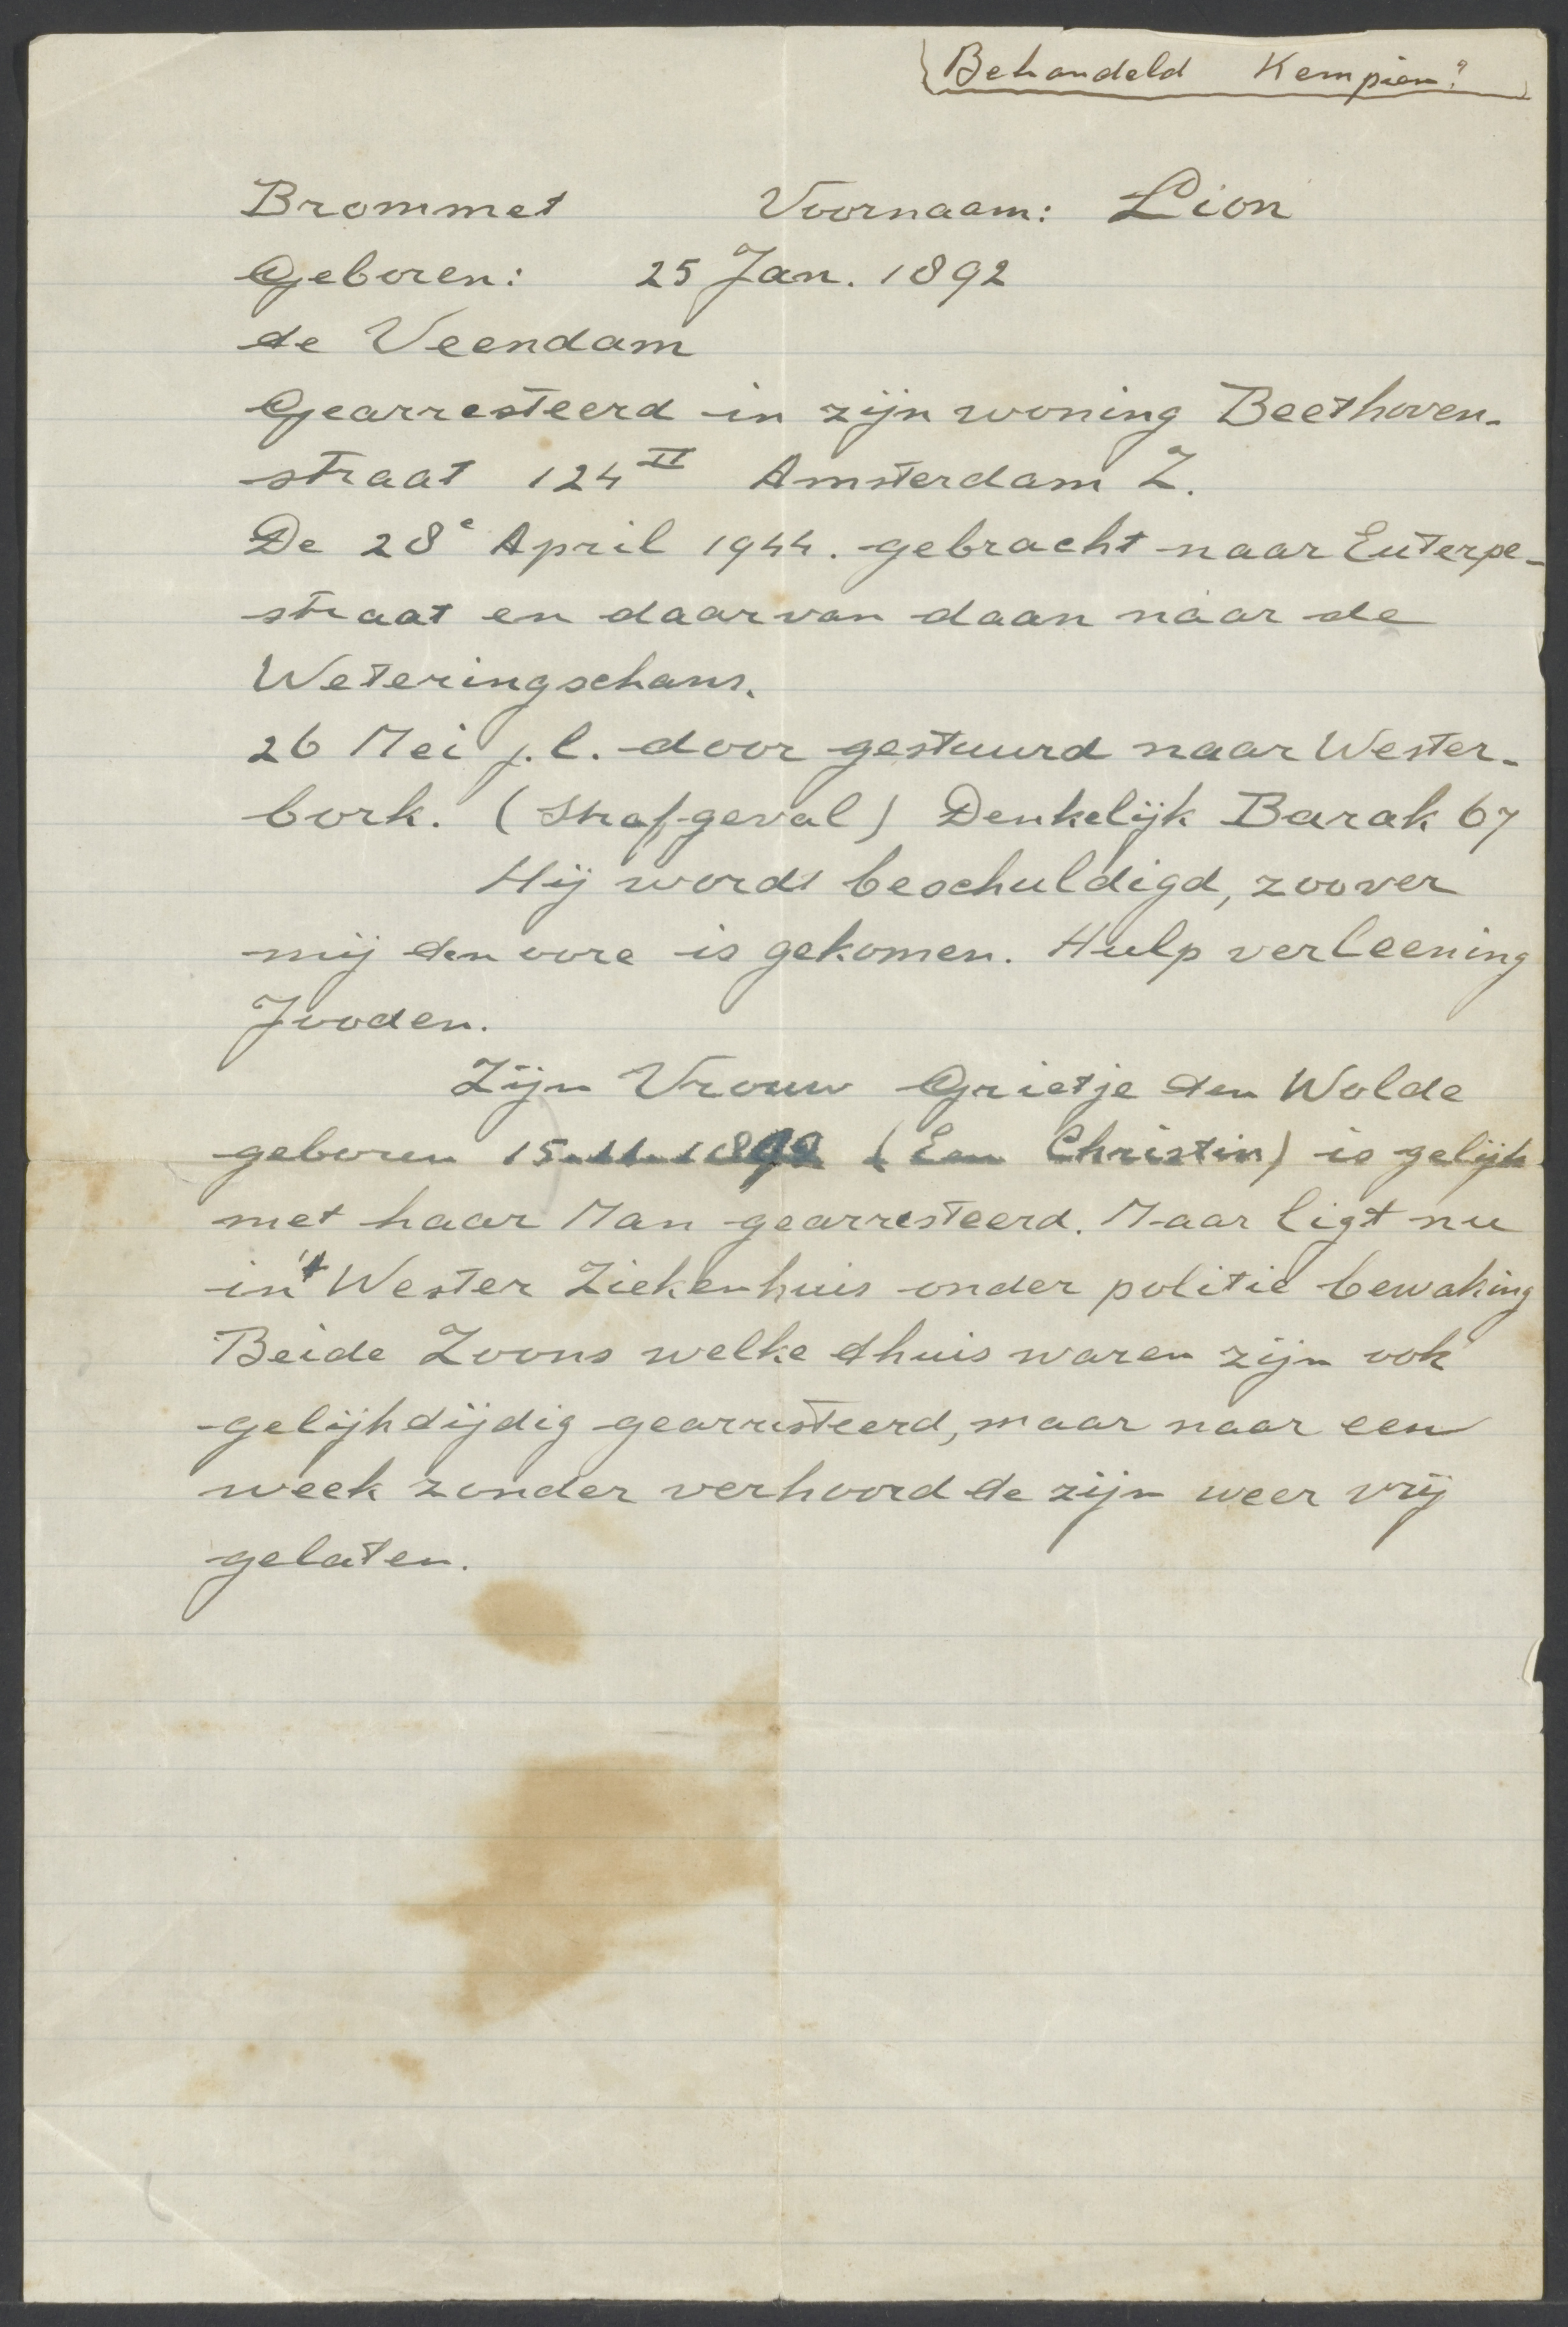 Behandeld Kempion?
Brommet Voornaam: Lion
Geboren: 25 Jan. 1892
te Veendam
Gearresteerd in zijn woning Beethoven-
straat 124 II Amsterdam Z.
De 28e April 1944. gebracht naar Euterpe-
straat en daarvan daan naar de
Weteringschans.
26 Mei j.l. door gestuurd naar Wester-
bork. (Strafgeval) Denkelijk Barak 67
Hij wordt beschuldigd, zoover
mij ten oore is gekomen. Hulp verleening
Jooden.
Zijn Vrouw Grietje ten Wolde
geboren 15-11-1898 (Een Christin) is gelijk
met haar Man gearresteerd. Maar ligt nu
in 't Wester Ziekenhuis onder politie bewaking
Beide Zoons welke thuis waren zijn ook
gelijktijdig gearresteerd, maar naar een
week zonder verhoord te zijn weer vrij
gelaten.